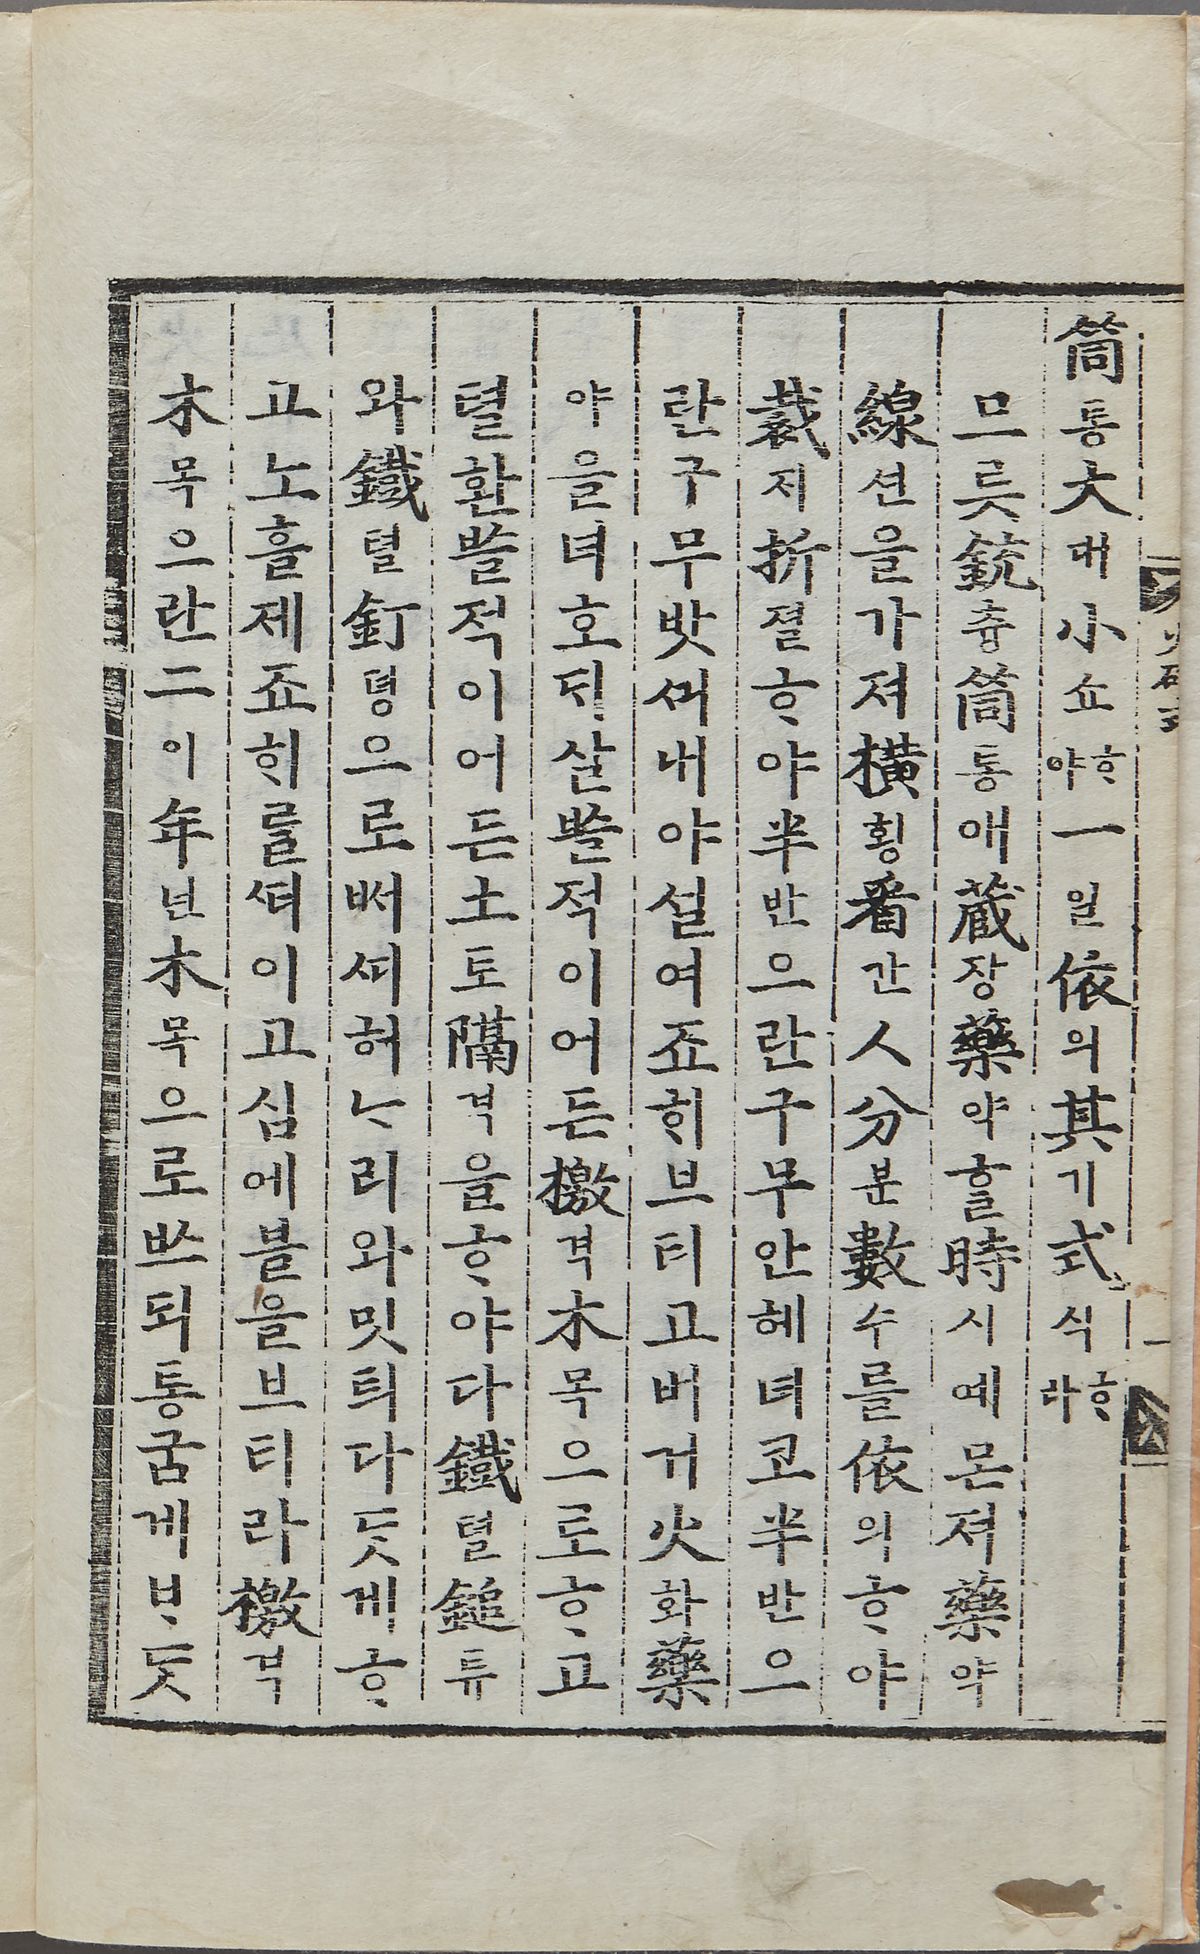 筒통大대小쇼ᄒᆞ야一일依의其기式식ᄒᆞ라
므릇銃츙筒통애藏장藥약ᄒᆞᆯ時시예몬져藥약
線션을가져橫횡看간人分분數수를依의ᄒᆞ야
裁ᄌᆡ折졀ᄒᆞ야半반으란구무안헤녀코半반으
란구무밧ᄭᅴ내야설여죠ᄒᆡ브티고버거火화藥
약을녀호ᄃᆡ살ᄡᅳᆯ적이어든檄격木목으로ᄒᆞ고
텰환ᄡᅳᆯ적이어든土토隔격을ᄒᆞ야다鐵텰鎚튜
와鐵텰釘뎡으로ᄲᅥ셔혀ᄂᆞ리와밋틔다ᄃᆞᆺ게ᄒᆞ
고노흘제죠ᄒᆡ를ᄯᅥ이고심에블을브티라檄격
木목으란二이年년木목으로ᄡᅳ되통굼게ᄇᆞᄃᆞᆺ